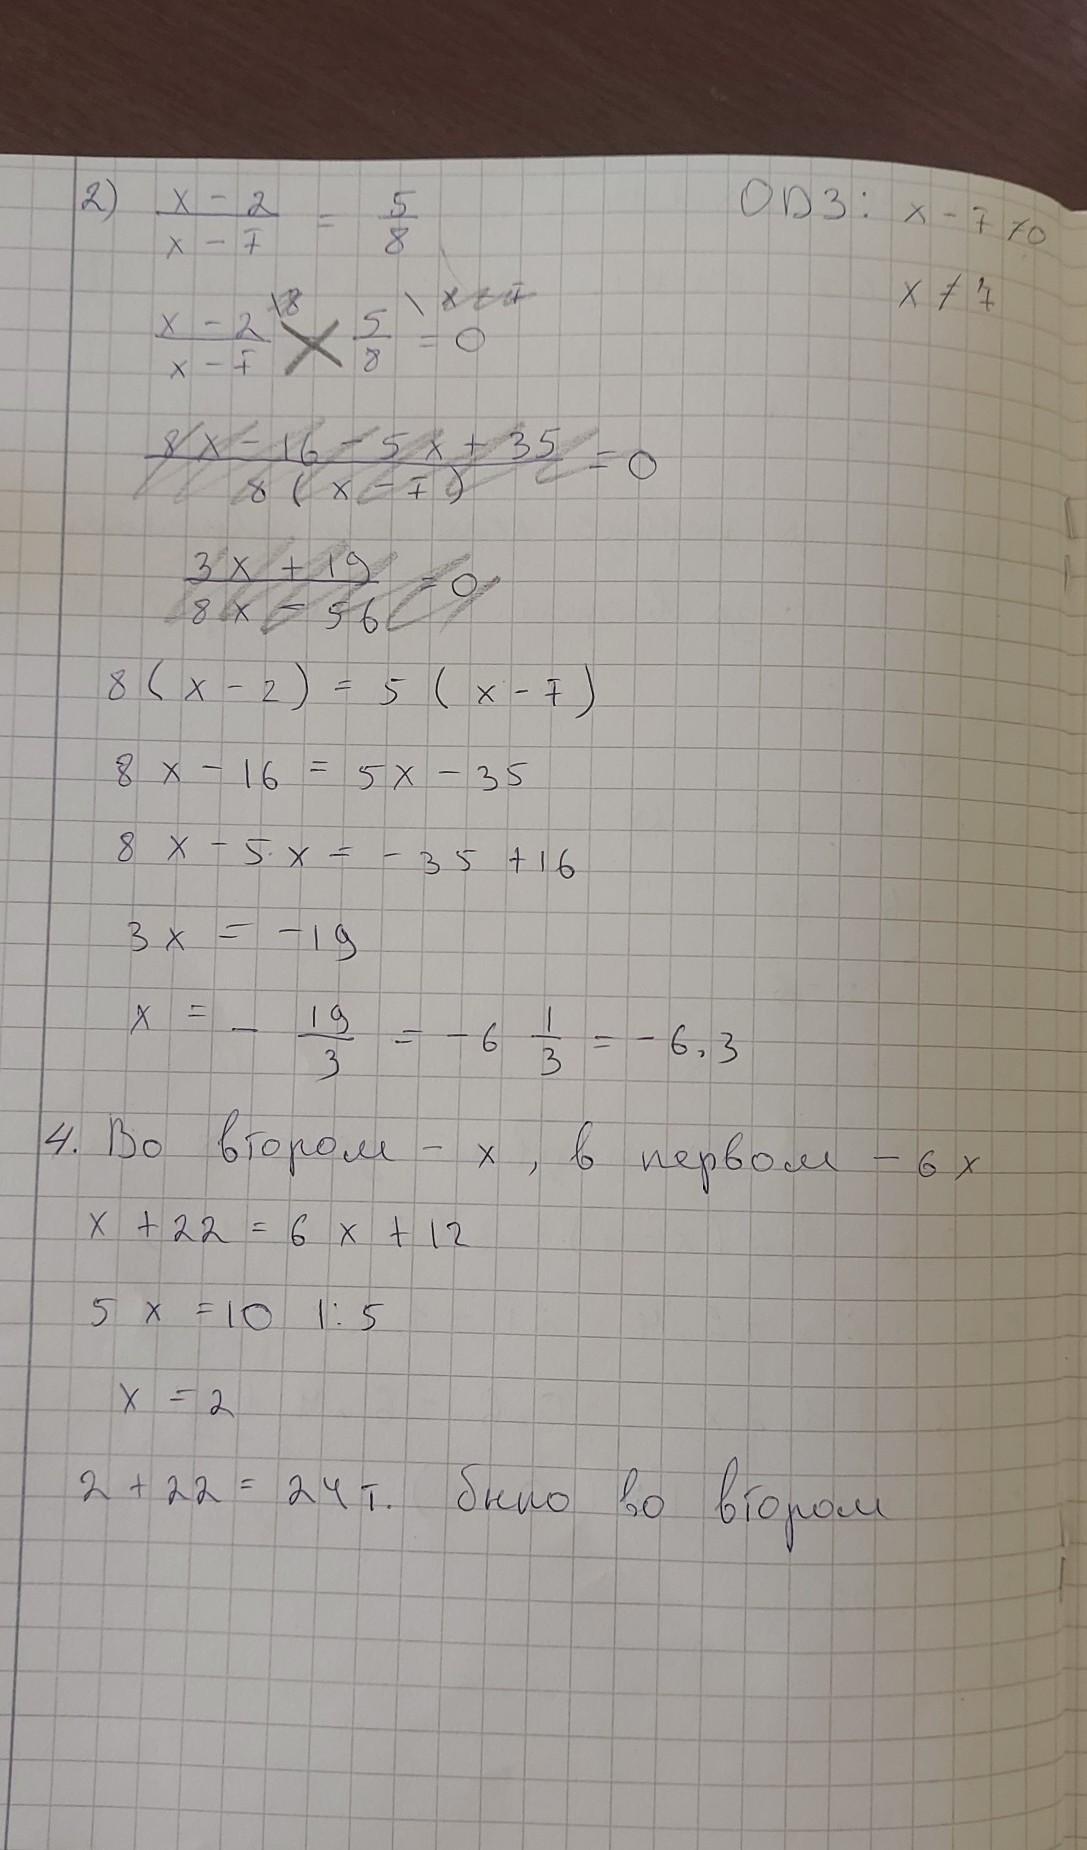 2) (x - 2)/(x - 7) = 5/8 ОДЗ: x - 7 ≠ 0
x ≠ 7
(x - 2)/(x - 7) \8 × 5/8 \x - 7 = 0
(8x - 16 - 5x + 35)/(8(x - 7)) = 0
(3x + 19)/(8x - 56) = 0
8(x - 2) = 5(x - 7)
8x - 16 = 5x - 35
8x - 5x = -35 + 16
3x = -19
x = - 19/3 = -6 1/3 = -6,3
4. Во втором - x, в первом - 6x
x + 22 = 6x + 12
5x = 10 |:5
x = 2
2 + 22 = 24 т. было во втором